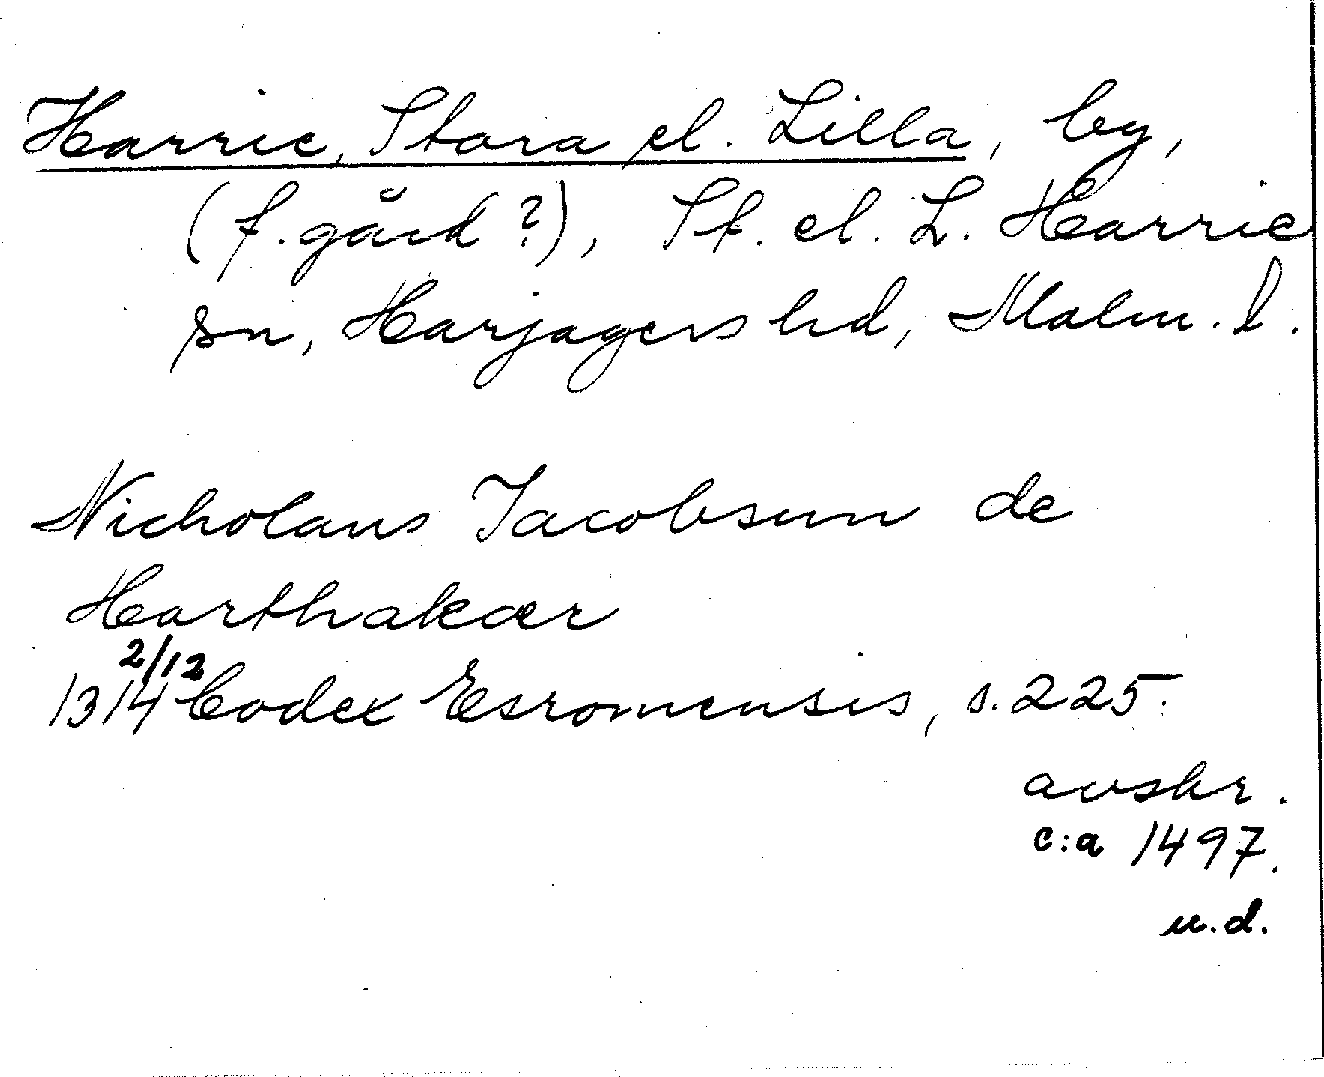 Harrie, Stora el. Lilla, by,
(f. gård?), St. el. L. Harrie
sn, Harjagers hd, Malm. l.
Nicholaus Jacobsun de
Harthakær
1314 2/12 Codex Esromensis, s. 225.
avskr.
c:a 1497.
u.d.